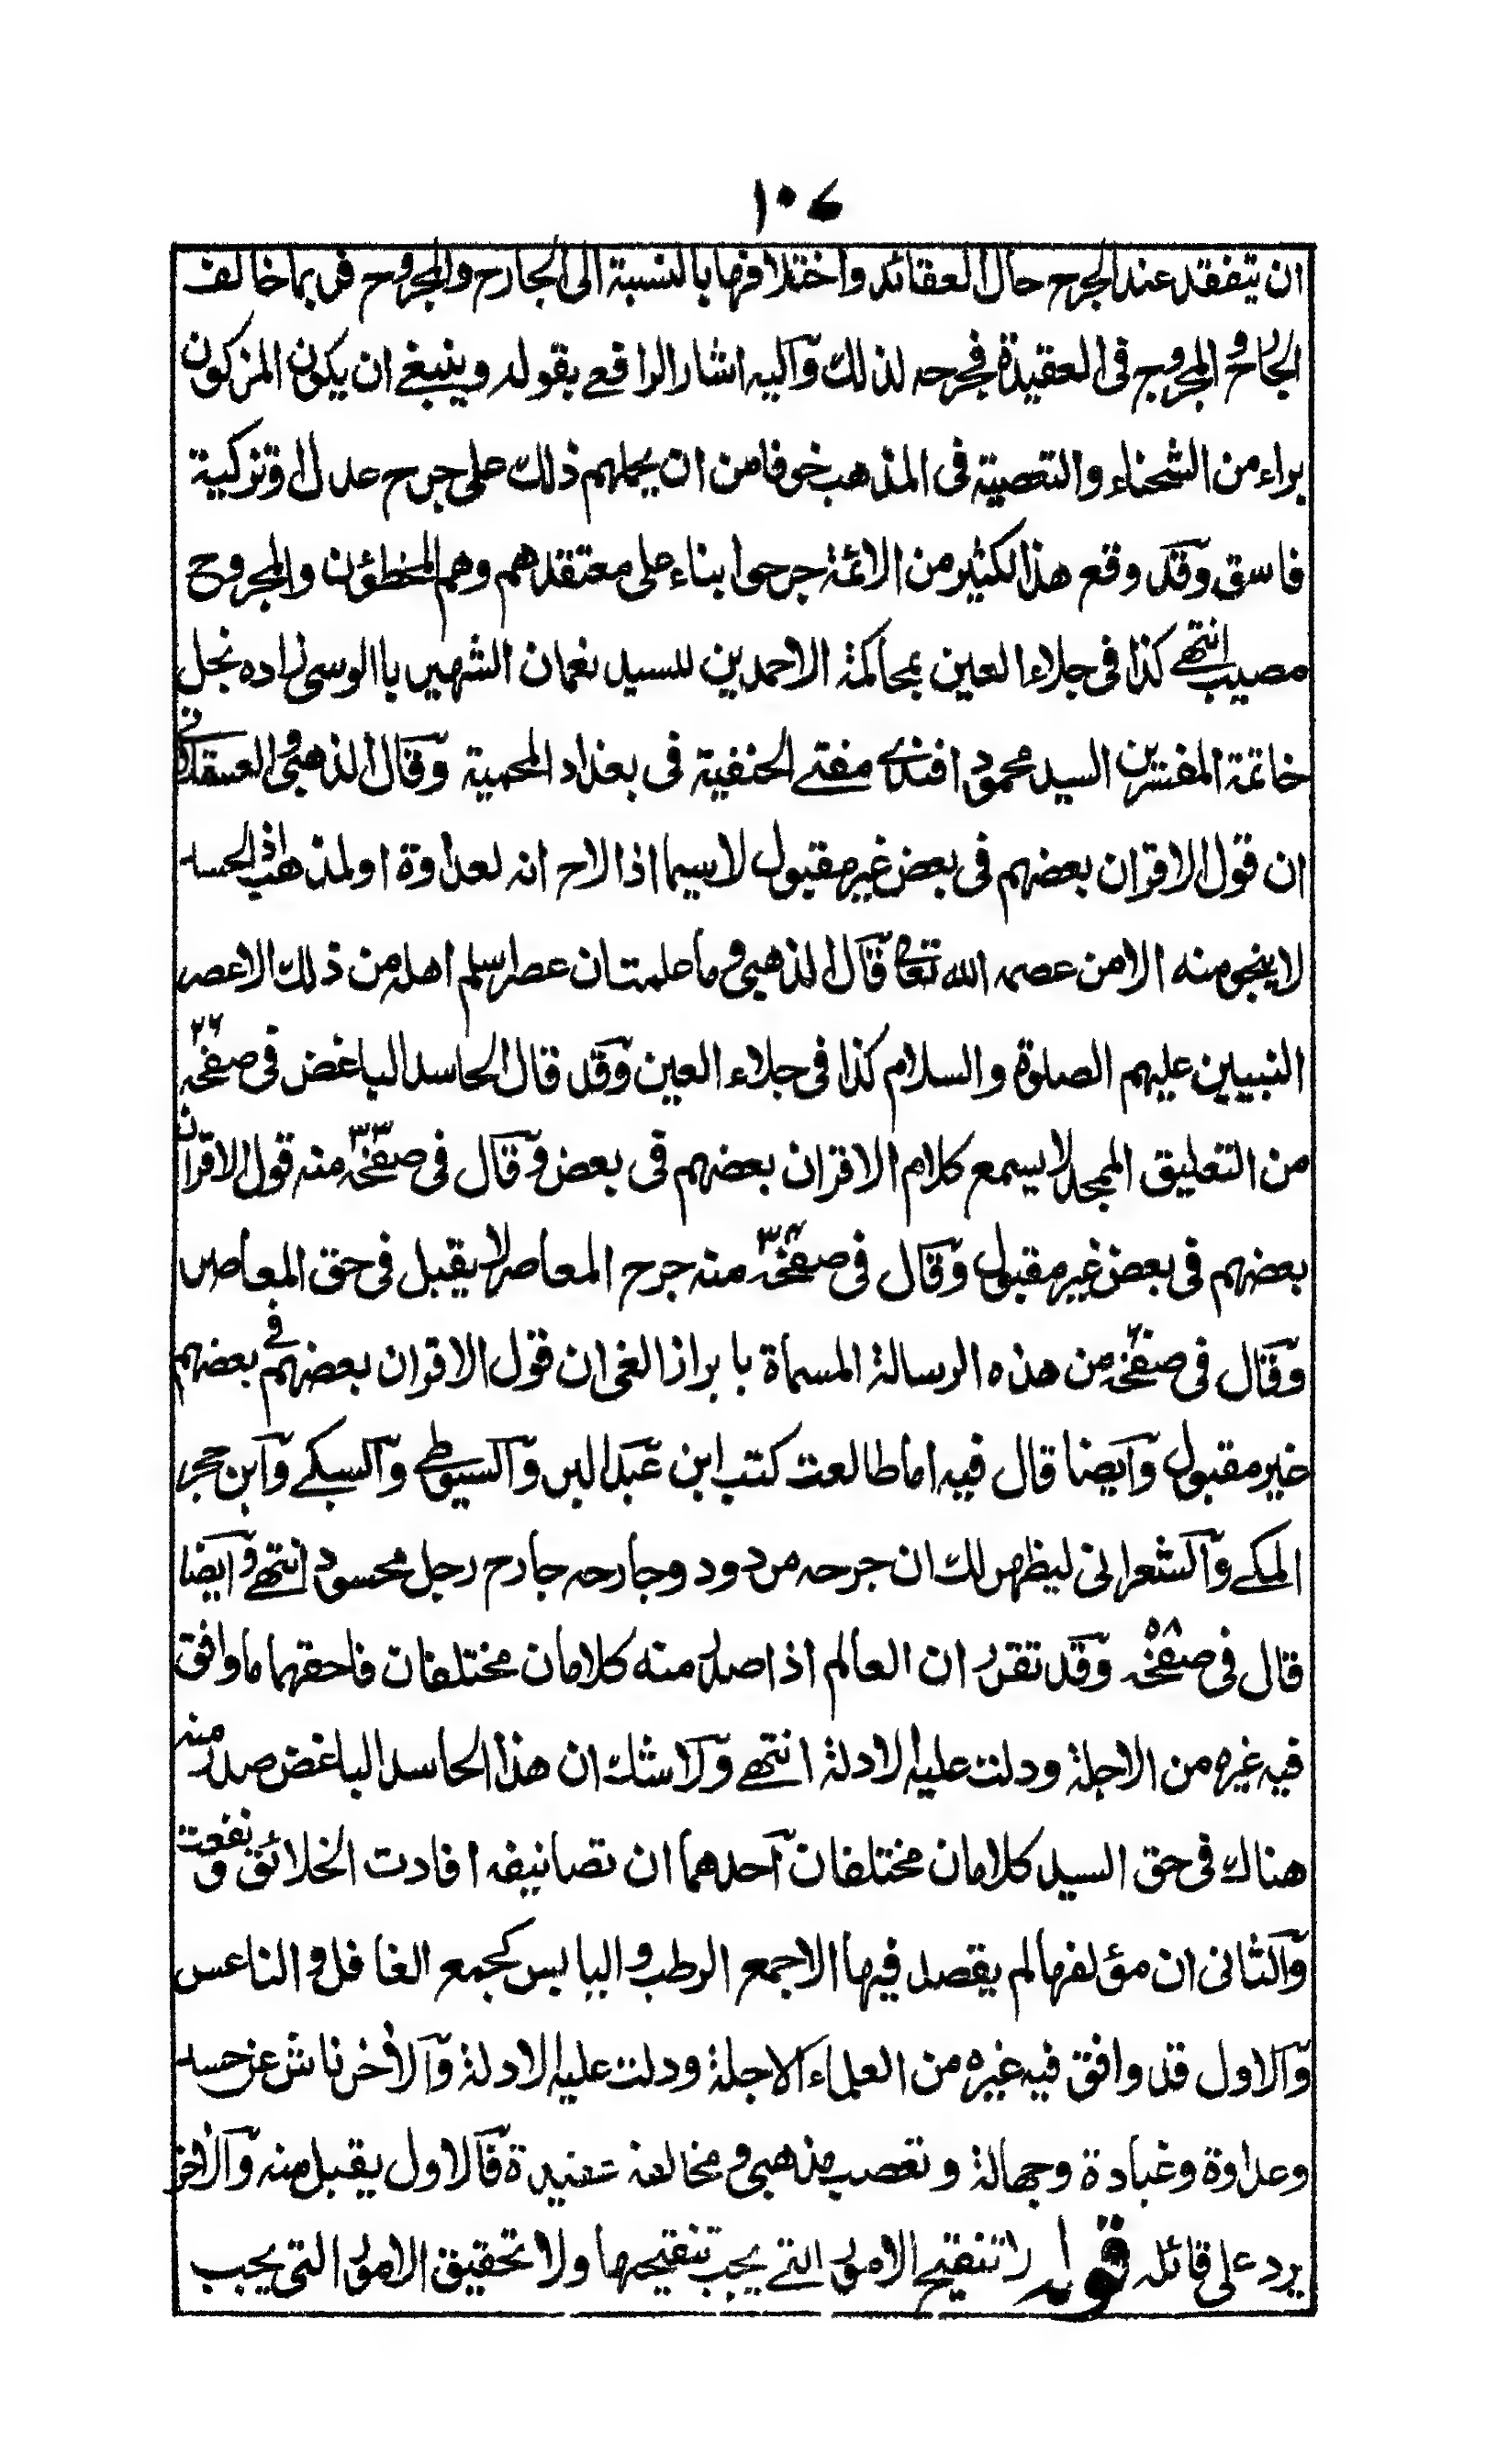 ١٠٧
ان يتفقد عند الجرح حال العقائد واختلافها بالنسبة الى الجارح والمجروح فربما خالف
الجارح والمجروح فى العقيدة فجرحه لذلك وآليه اشار الرافعے بقوله وينبغے ان يكون المزكون
براء من الشحناء والتعصبية فى المذهب خوفا من ان يحملهم ذلك على جرح عدل او تزكية
فاسق وقد وقع هذا لكثير من الائمة جرحوا بناء على معتقدهم وهم المخطؤن والمجروح
مصيب انتهے كذا فى جلاء العين بمحاكمة الاحمدين للسيد نعمان الشهير باالوسى زاده نجل
خاتمة المفسرين السيد محمود افندے مفتے الحنفية فى بغداد المحمية وقال الذهبى والعسقلانى
ان قول الاقران بعضهم فى بعض غير مقبول لاسيما اذا لاح انه لعداوة او لمذهب اذ الحسد
لا ينجو منه الا من عصمه الله تعالے قال الذهبى وما علمت ان عصرا سلم اهله من ذلك الا عصر
النبيين عليهم الصلوة والسلام كذا فى جلاء العين وقد قال الحاسد الباغض فى صفحه ٢٦
من التعليق الممجد لا يسمع كلام الاقران بعضهم فى بعض وقال فى صفحه ٣٣ منه قول الاقران
بعضهم فى بعض غير مقبول وقال فى صفحه منه جرح المعاصر لا يقبل فى حق المعاصر
وقال فى صفحه ٦ من هذه الرسالة المسماة بابراز الغى ان قول الاقران بعضهم فے بعضهم
غير مقبول وآيضا قال فيه اما طالعت كتب ابن عبد البر وآلسيوطے وآلسبكے وآبن حجر
المكے وآلشعرانى ليظهر لك ان جرحه مردود وجارحه جارح رجل محسود انتهے وآيضا
قال فى صفحه ٥٨ وقد تقرر ان العالم اذا صدر منه كلامان مختلفان فاحقهما ما وافق
فيه غيره من الاجلة ودلت عليه الادلة انتهے ولا شك ان هذا الحاسد الباغض صدر منه
هناك فى حق السيد كلامان مختلفان آحدهما ان تصانيفه افادت الخلائق ونفعت
وآلثانى ان مؤلفها لم يقصد فيها الا جمع الرطب واليابس كجمع الغافل والناعس
وآلاول قد وافق فيه غيره من العلماء الاجلة ودلت عليه الادلة وآلأخر ناش عن حسد
وعداوة وغبادة وجهالة وتعصب مذهبى ومخالفة عقيدة فآلاول يقبل منه وآلأخر
يرد على قائله قوله لا تنقيح الامور التے يجب تنقيحها ولا تحقيق الامور التى يجب